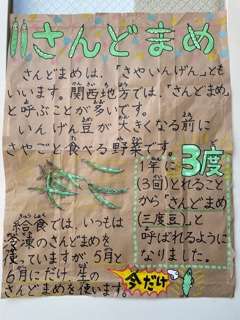 さんどまめ
さんどまめは、「さやいんげん」とも
いいます。関西地方では、「さんどまめ」
と呼ぶことが多いです。
いんげん豆が大きくなる前に
さやごと食べる野菜です。
1年に3度
(3回)とれること
から「さんどまめ
(三度豆)」と
呼ばれるように
なりました。
給食では、いつもは
冷凍のさんどまめを
使っていますが、5月と
6月にだけ生の
さんどまめを使います。
今だけ